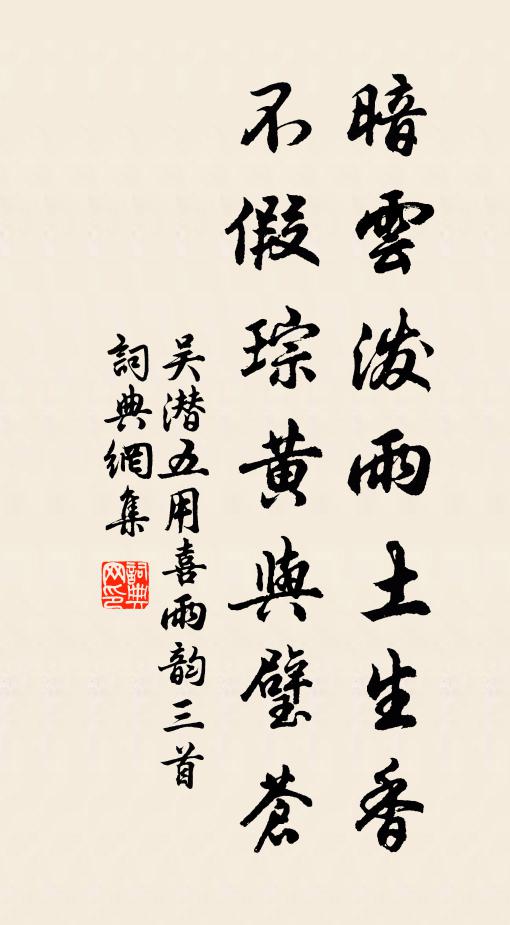 暗雲潑雨土生香
不假琮黃與璧蒼
吴潛五用喜雨韵三首
詞典網集
詞典
网印